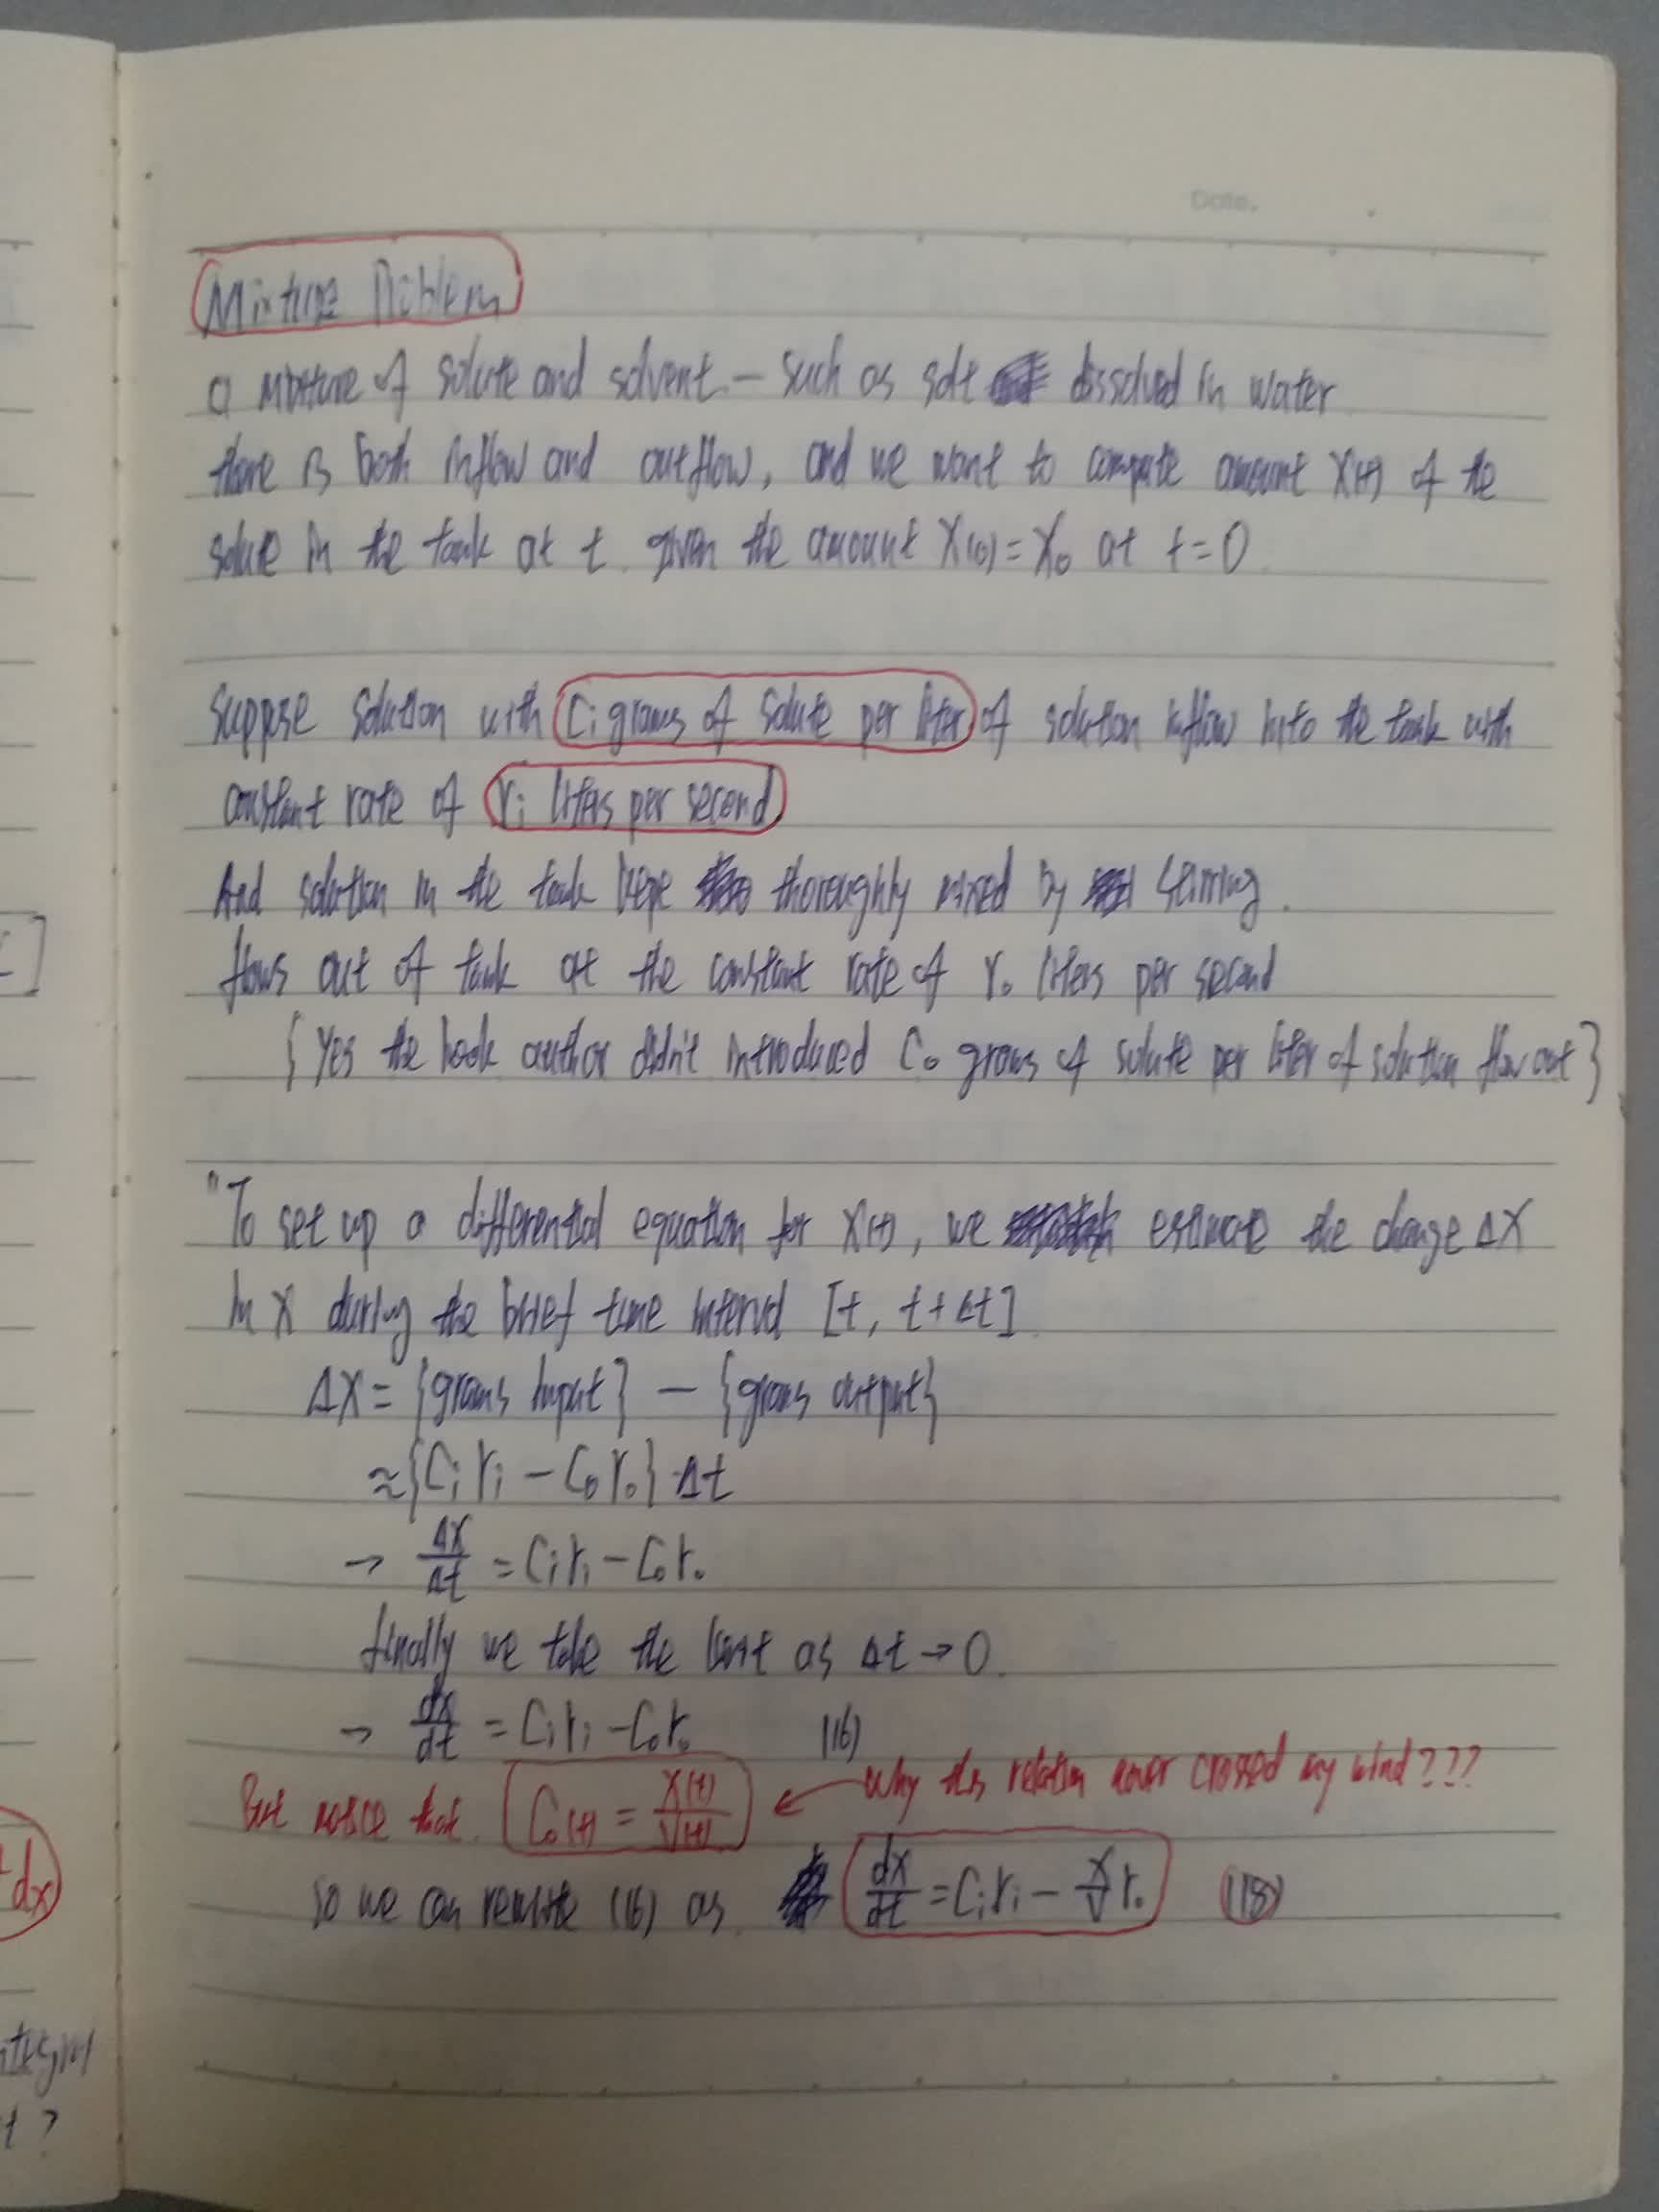 Date.
Mixture Problem
a mixture of solute and solvent – such as salt dissolved in water
there is both inflow and outflow, and we want to compute amount X(t) of the
solute in the tank at t. given the amount X(0) = X₀ at t = 0.
suppose solution with Ci grams of solute per liter of solution inflow into the tank with
constant rate of ri liters per second
And solution in the tank kept thoroughly mixed by stirring.
flows out of tank at the constant rate of r₀ liters per second
{ Yes the book author didn't introduced C₀ grams of solute per liter of solution flow out }
"To set up a differential equation for X(t), we estimate the change ΔX
in X during the brief time interval [t, t+Δt]
ΔX = {grams input} – {grams output}
≈ {Ci ri – C₀ r₀} · Δt
→ ΔX/Δt = Ci ri – C₀ r₀
finally we take the limit as Δt → 0.
→ dx/dt = Ci ri – C₀ r₀ (16)
But notice that. C₀(t) = X(t)/V(t) ← Why this relation never crossed my mind???
so we can rewrite (16) as dx/dt = Ci ri – X/V r₀ (18)
dx
t?